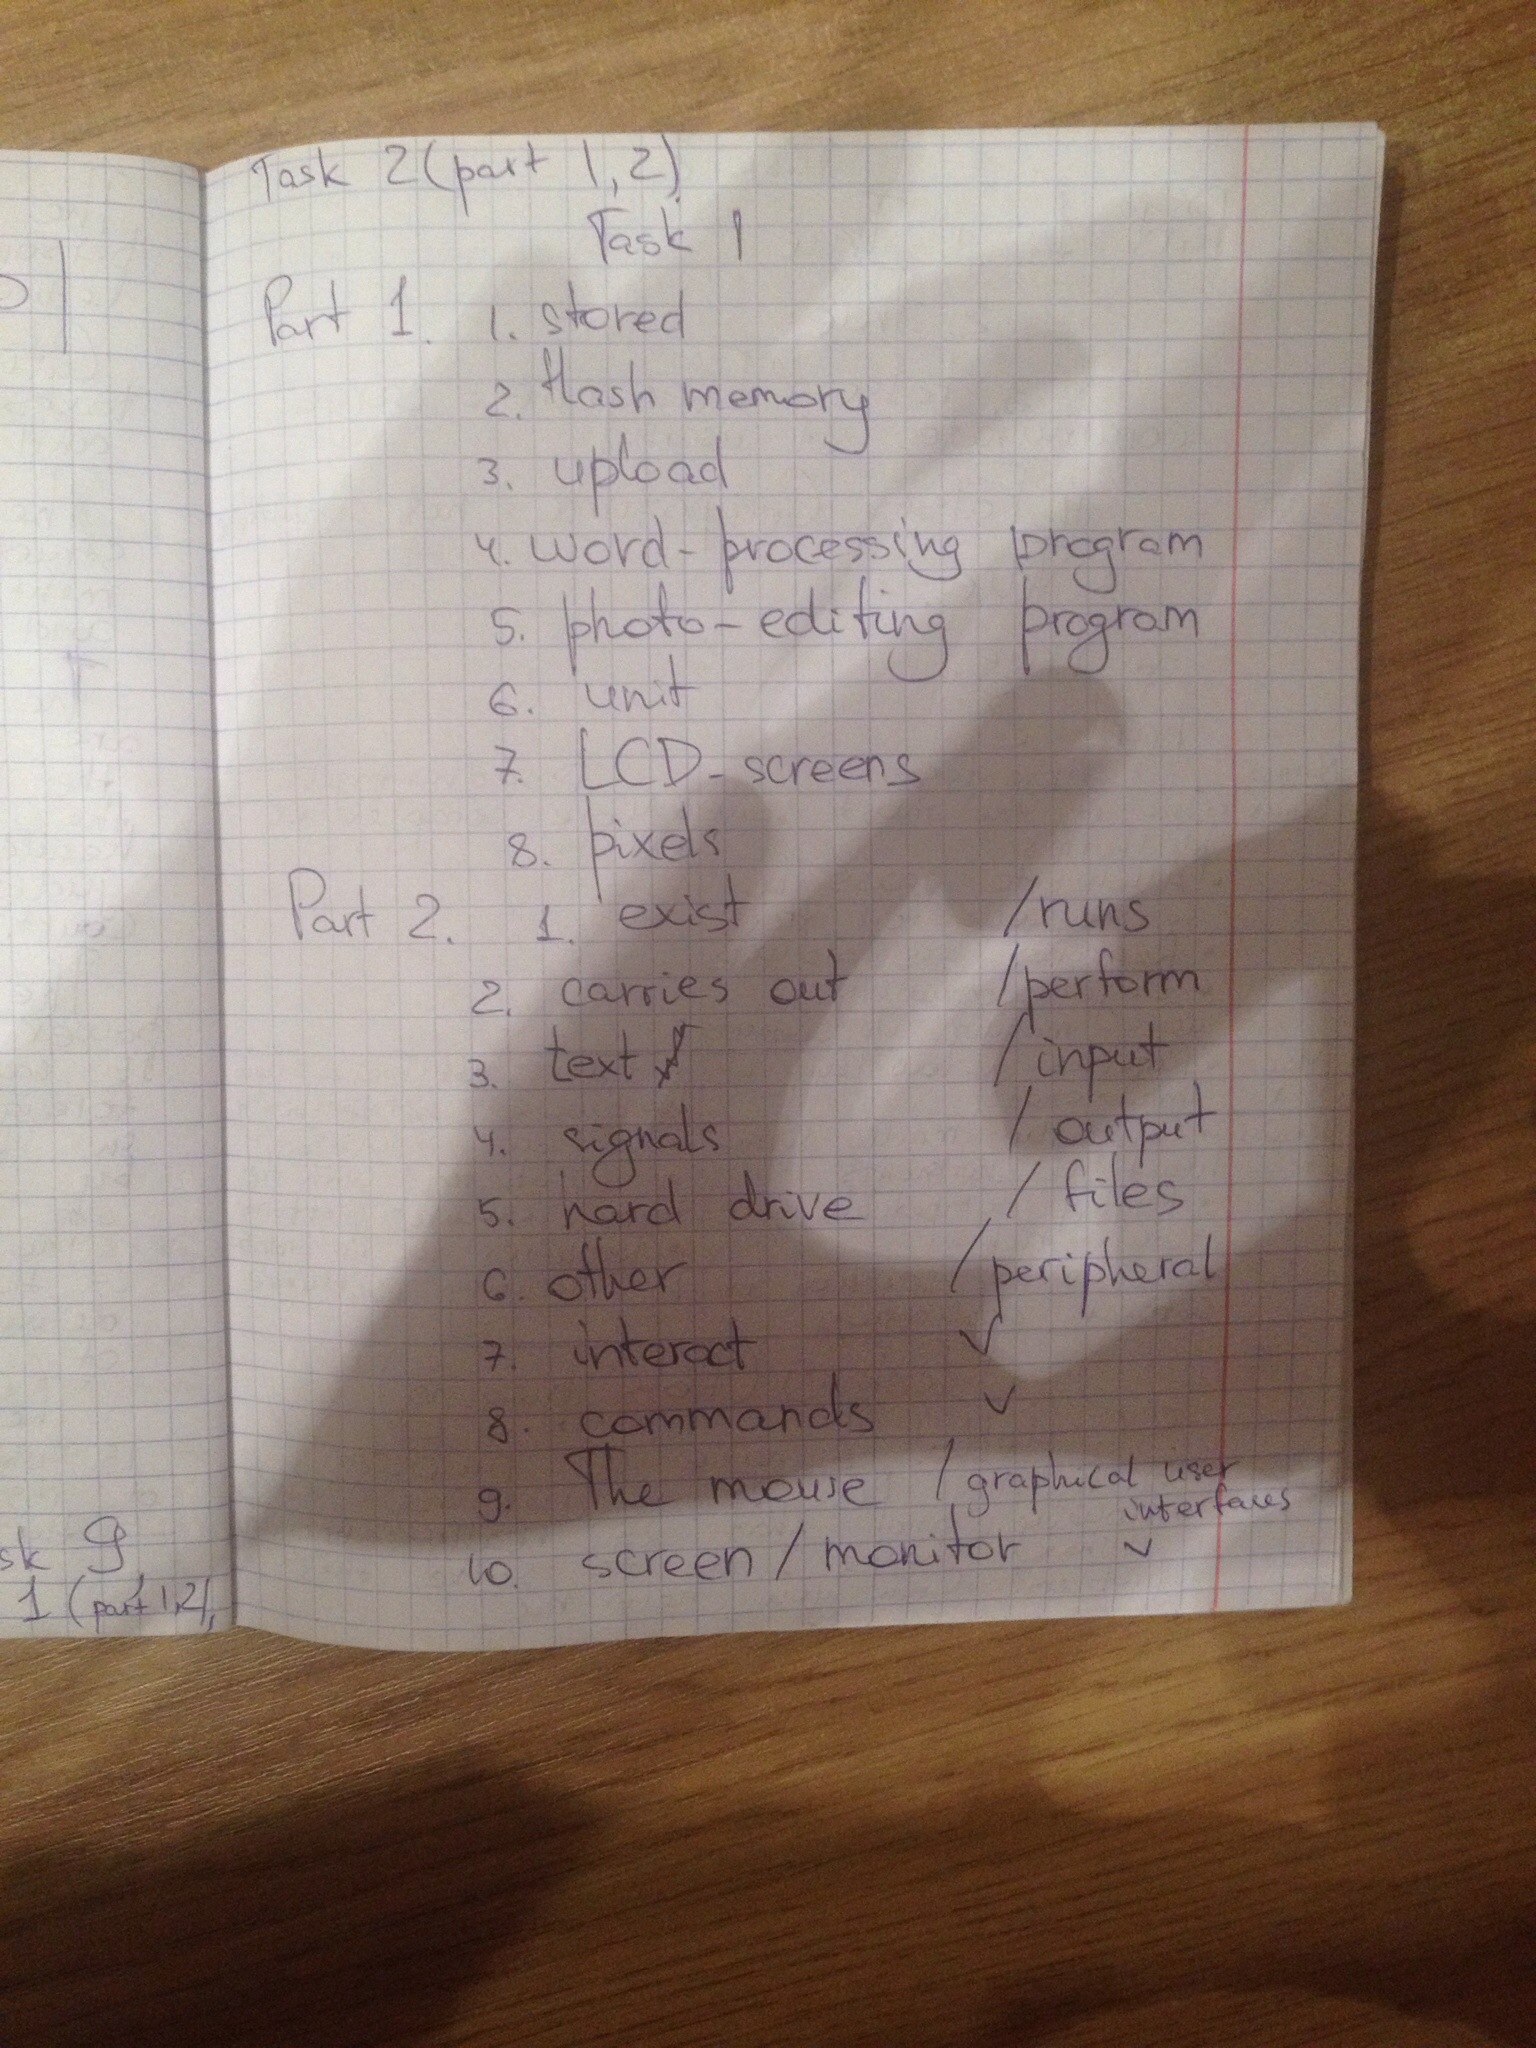 Task 2 (part 1, 2)
Task 1
Part 1. 1. stored
2. flash memory
3. upload
4. word-processing program
5. photo-editing program
6. unit
7. LCD-screens
8. pixels
Part 2. 1. exist /runs
2. carries out /perform
3. text /input
4. signals / output
5. hard drive / files
6. other /peripheral
7. interact ✓
8. commands ✓
9. The mouse / graphical user
interfaces
10. screen / monitor ✓
sk 9
1 (part 1,2),